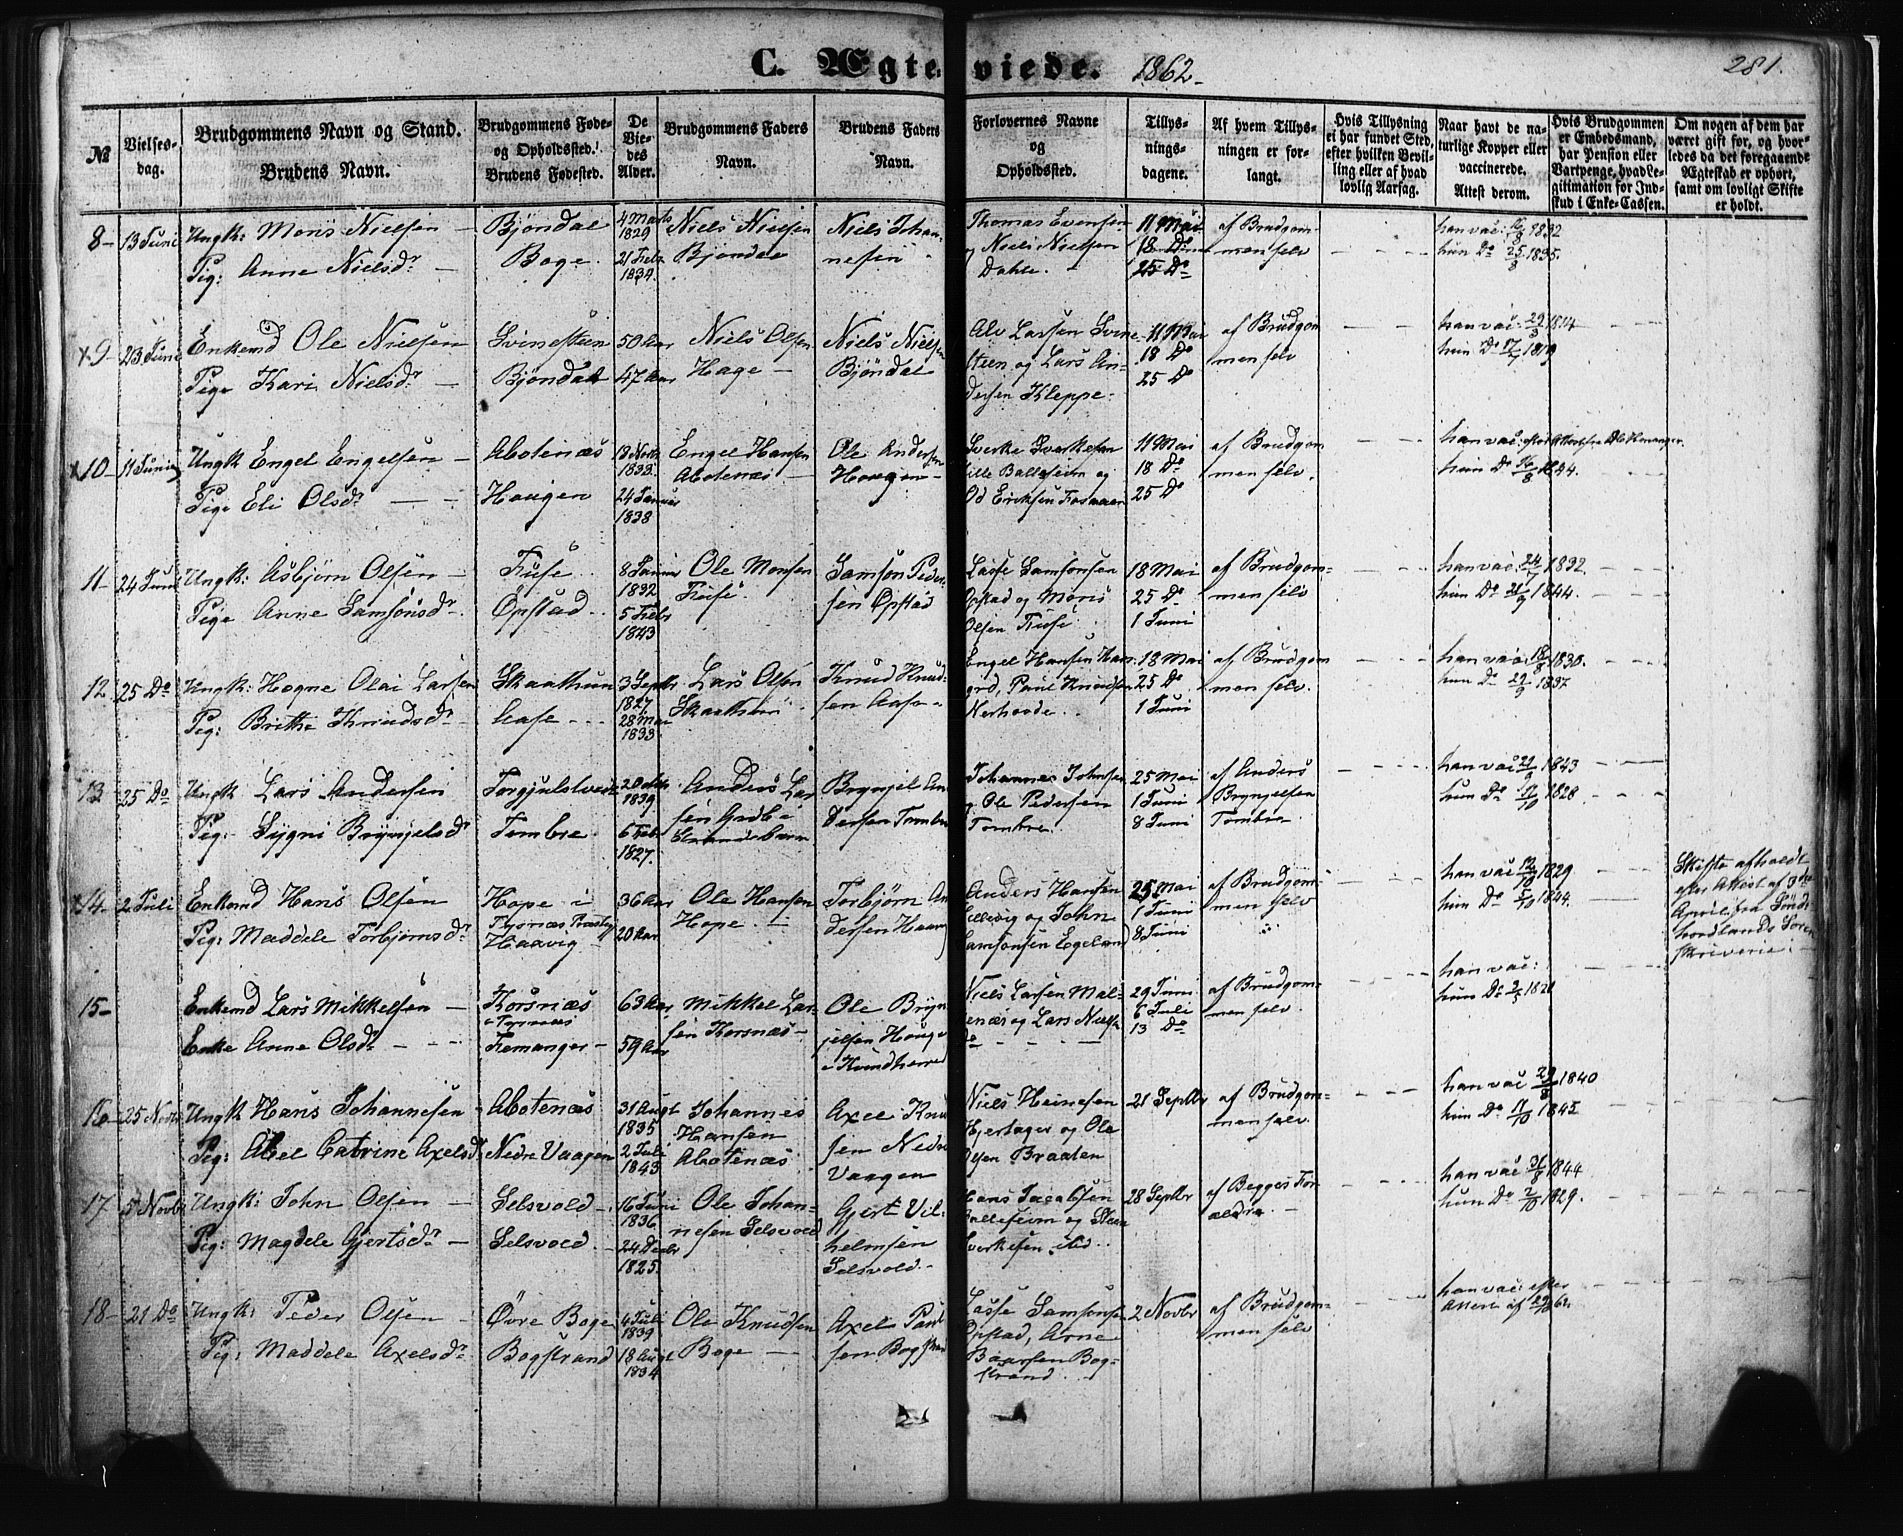 C. Ægteviede. 1862
281.
№
Vielses-
dag.
Brudgommens Navn og Stand.
Brudens Navn.
Brudgommens Føde-
og Opholdssted.
Brudens Fødested.
De
Vie-
des
Alder.
Brudgommens Faders
Navn.
Brudens Faders
Navn.
Forlovernes Navne
og
Opholdssted.
Tillys-
nings-
dagene.
Af hvem Tillys-
ningen er for-
langt.
Hvis Tillysning
ei har fundet Sted,
efter hvilken Bevil-
ling eller af hvad
lovlig Aarsag.
Naar havt de na-
turlige Kopper eller
vaccinerede.
Attest derom.
Hvis Brudgommen
er Embedsmand,
har Pension eller
Vartpenge, hvad Le-
gitimation for Ind-
skud i Enke-Cassen.
Om nogen af dem har
været gift for, og hvor-
ledes da det foregaaende
Ægteskab er ophørt,
samt om lovligt Skifte
er holdt.
8 - 13 Juni Ungk: Mons Nielsen - Bjøndal 4 Marts 1829 Niels Nielsen Niels Johan- Thomas Evensen 11 Mai af Brudgom- han vac: 1832
Pig: Anne Nielsdr - Boge 21 Febr 1834. Bjøndal nesen Niels Nielsen 18 Do men selv hun Do 25/8 1835.
Dahle. 25 Do
x9 - 23 Juni Enkemd Ole Nielsen Svinesteen 50 Aar Niels Olsen Niels Nielsen Alv Larsen Svine- 11 Mai af Brudgom han vac: 29/3 1814
Pige Kari Nielsdr - Bjøndal 47 Aar Hage - Bjøndal steen og Lars An- 18 Do men selv hun Do 1819
dersen Kleppe. 25 Do
x10 - 11 Juni Ungk Engel Engelsen - Abotenæs 1833. Engel Hansen Ole Andersen Sverke Sverkesen 11 Mai af Brudgom han vac:
Pige Eli Olsdr - - Haugen 24 Januar 1838 Abotenæs - Haugen - lille Balleseim og 18 Do men selv. hun Do 1844.
Od Eriksen 25 Do
11 - 24 Juni Ungk: Asbjørn Olsen - Fuse 8 Januar 1832 Ole Monsen Samson Peder- Lasse Samsonsen 18 Mai af Brudgom- han vac 24/7 1832.
Pige Anne Samsonsdr. Opstad 5 Febr 1843 Fuse. sen Opstad Opstad og Mons 25 Do men selv hun Do 21/9 1844.
Olsen Fuse 1 Juni
12 25 Do Ungk: Hogne Olai Larsen Skaathun 3 Septbr 1827 Lars Olsen Knud Knud- Engel Hansen 18 Mai af Brudgom han vac: 18/8 1830.
Pig: Brithe Knudsdr - Aase - - 28 Mai 1833 Skaathun. sen Aase - Paul Knudsen 25 Do men selv. hun Do 29/9 1837
Nerhovde. 1 Juni
13 25 Do Ungk Lars Andersen 1839 Anders Lar Brynjel An Johannes Johnsen 25 Mai af Anders han vac 21/9 1843
Pig: Sygni Brynjelsdr Tombre 6 Febr 1827. sen dersen Tombre Ole Pedersen 1 Juni Brynjelsen hun Do 1828
Tombre. 8 Juni Tombre
x14 - 2 Juli Enkemd Hans Olsen Hope i 36 Aar Ole Hansen Torbjørn An Anders Hansen 25 Mai af Brudgom- han vac 12/10 1829 Skifte afholdt
Tysnæs Præstegj efter Attest af 3die
Pig: Maddele Torbjørnsdr Haavig 20 Aar Hope. - dersen Haavig og John 1 Juni men selv hun Do 1844. April fra Sønd-
Samsonsen Egeland 8 Juni hordlands Soren
skriverie.
15 - Enkemd Lars Mikkelsen - Korsnæs 63 Aar Mikkel Lar- Ole Bryn Niels Larsen Mal- 29 Juni af Brudgom- han vac:
i Tysnæs
Enke Anne Olsdr - - - Femanger - 59 Aar sen Korsnæs - jelsen Hauge enæs og Lars Nielsen 6 Juli men selv. hun Do
i Kvindherred Do - - - 13 Do
16 - 25 Novbr Ungk Hans Johannesen Abotenæs 31 Augt 1835 Johannes Axel Knu Niels Heinesen 21 Septbr af Brudgom- han vac 29/8 1840
Pig: Abel Catrine Axelsdr Nedre Vaagen 2 Juli 1843 Hansen sen Nedre Hjertager og Ole men selv. hun Do 11/10 1845
Abotenæs Vaagen Olsen Braaten
17 5 Novbr Ungk: John Olsen - Selsvold - 16 Juni 1836 Ole Johan- Gjert Vil- Hans Jacobsen 28 Septbr af Begges For- han vac 31/8 1844
Pig: Magdele Gjertsdr - Selsvold - 24 Decbr 1825 nesen Selsvold helmsen Balleseim og ældre - hun Do 2/10 1829.
Selsvold - Sverkesen ibd.
18 - 21 Do Ungk: Peder Olsen - Øvre Boge 4 Juli 1839 Ole Knudsen Axel Paul Lasse Samsonsen 2 Novbr af Brudgom- han vac: efter
Pig: Maddele Axelsdr Bogstrand 18 Augt 1834 Boge - sen Bogstrand Opstad, Arne men selv Attest af 62.
Baarsen Bog-
strand